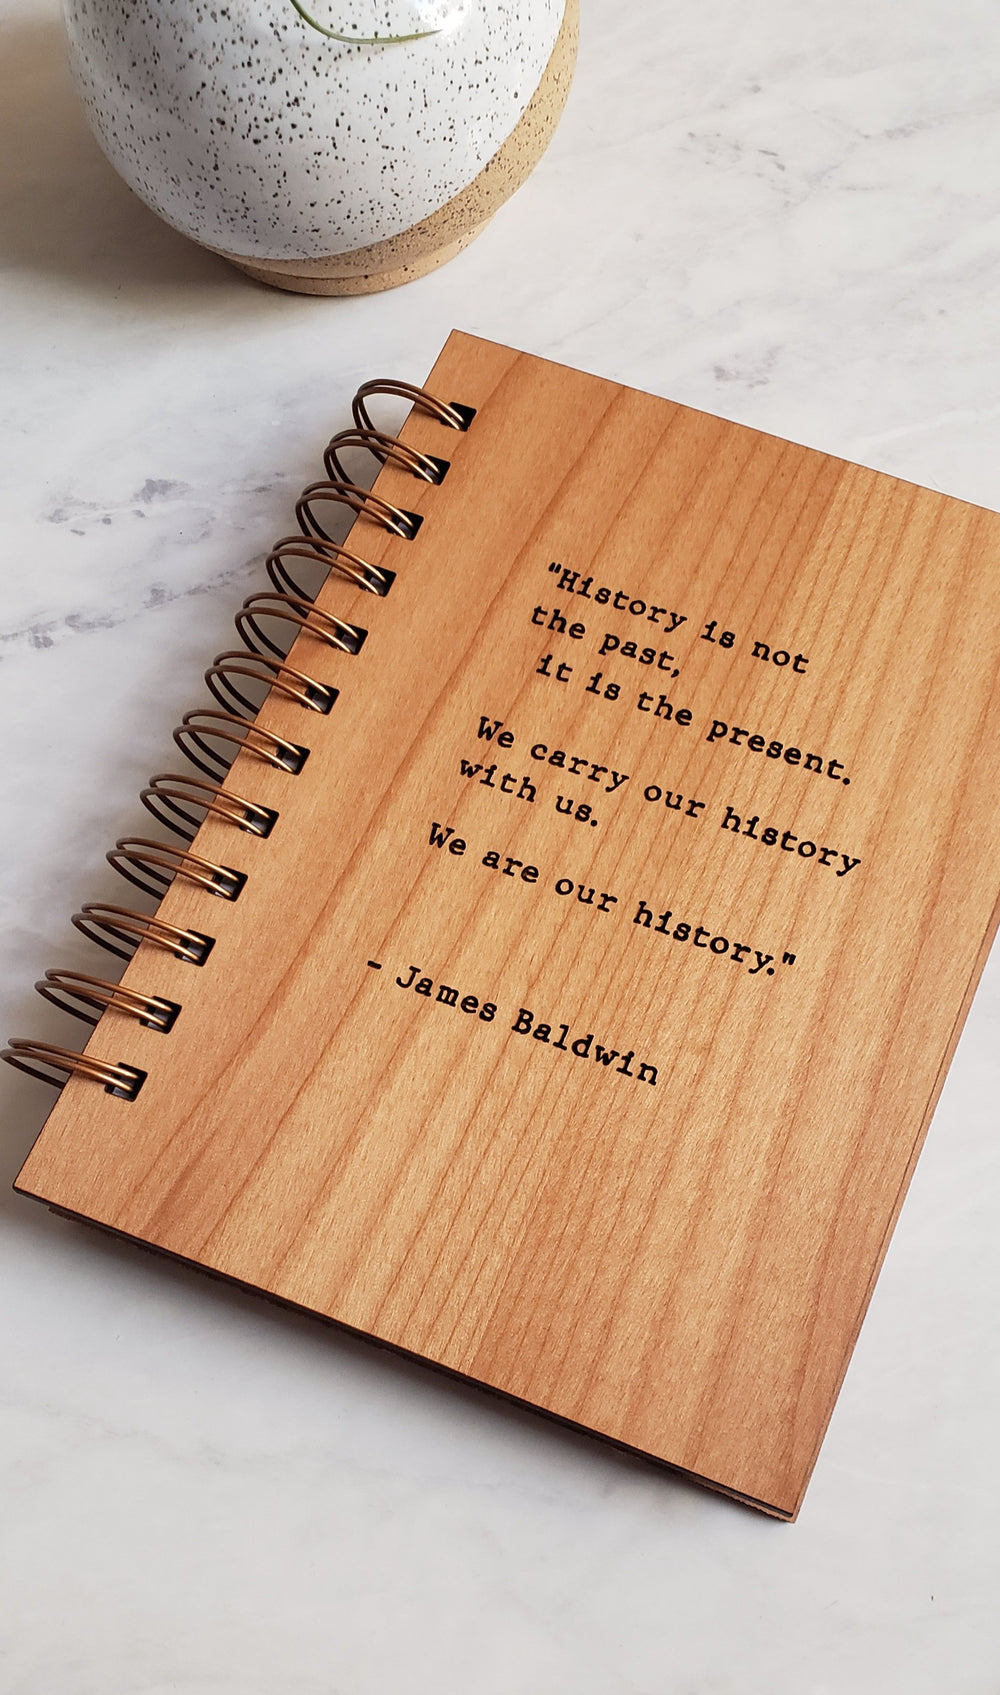 "History is not
the past,
it is the present.
We carry our history
with us.
We are our history."
- James Baldwin